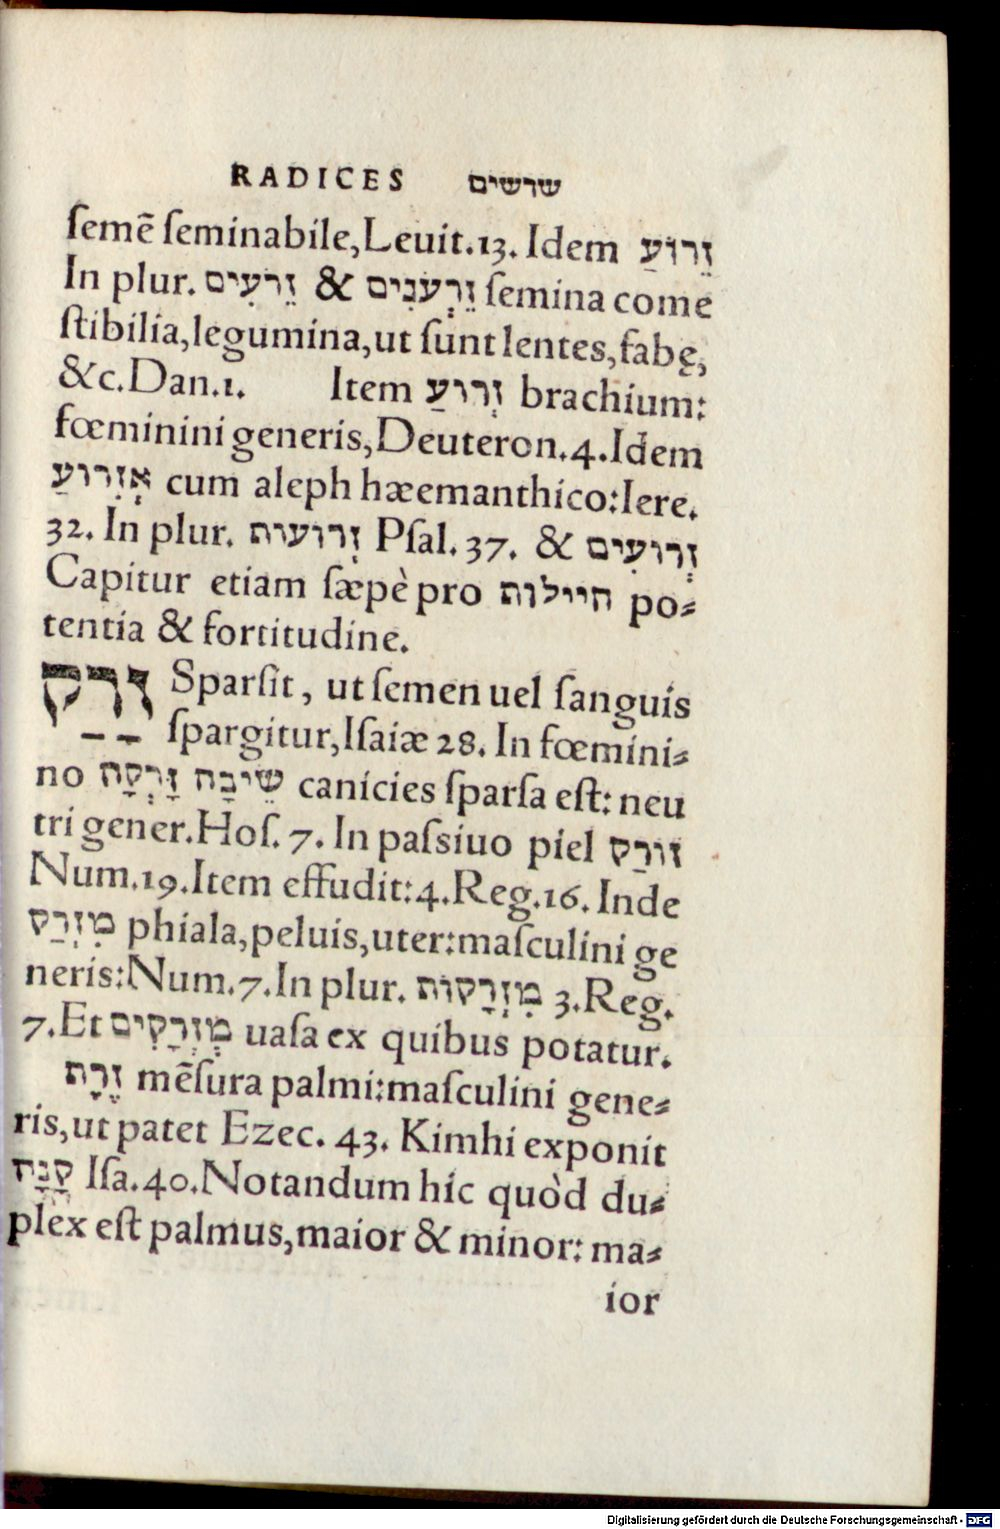 RADICES שרשים
ſemē ſeminabile, Leuit. 13. Idem זֵרוּעַ
In plur. זֵרְעֹנִים & זֵרְעִים ſemina come
ſtibilia, legumina, ut ſunt lentes, fabę,
&c. Dan. 1. Item זְרוּעַ brachium:
fœminini generis, Deuteron. 4. Idem
אֶזְרוּעַ cum aleph hæemanthico: Iere.
32. In plur. זְרוּעוֹת Pſal. 37. & זְרוּעִים
Capitur etiam ſæpè pro חיילות po⸗
tentia & fortitudine.
זָרַק Sparſit, ut ſemen uel ſanguis
ſpargitur, Iſaiæ 28. In fœmini⸗
no שֵׂיבָה זָרְקָה canicies ſparſa eſt: neu
tri gener. Hoſ. 7. In paſsiuo piel זוֹרַק
Num. 19. Item effudit: 4. Reg. 16. Inde
מִזְרַק phiala, peluis, uter: maſculini ge
neris: Num. 7. In plur. מִזְרָקוֹת 3. Reg.
7. Et מִזְרָקִים uaſa ex quibus potatur.
זֶרֶת mēſura palmi: maſculini gene⸗
ris, ut patet Ezec. 43. Kimhi exponit
קָנֶה Iſa. 40. Notandum hic quòd du⸗
plex eſt palmus, maior & minor: ma⸗
ior
Digitalisierung gefördert durch die Deutsche Forschungsgemeinschaft - DFG